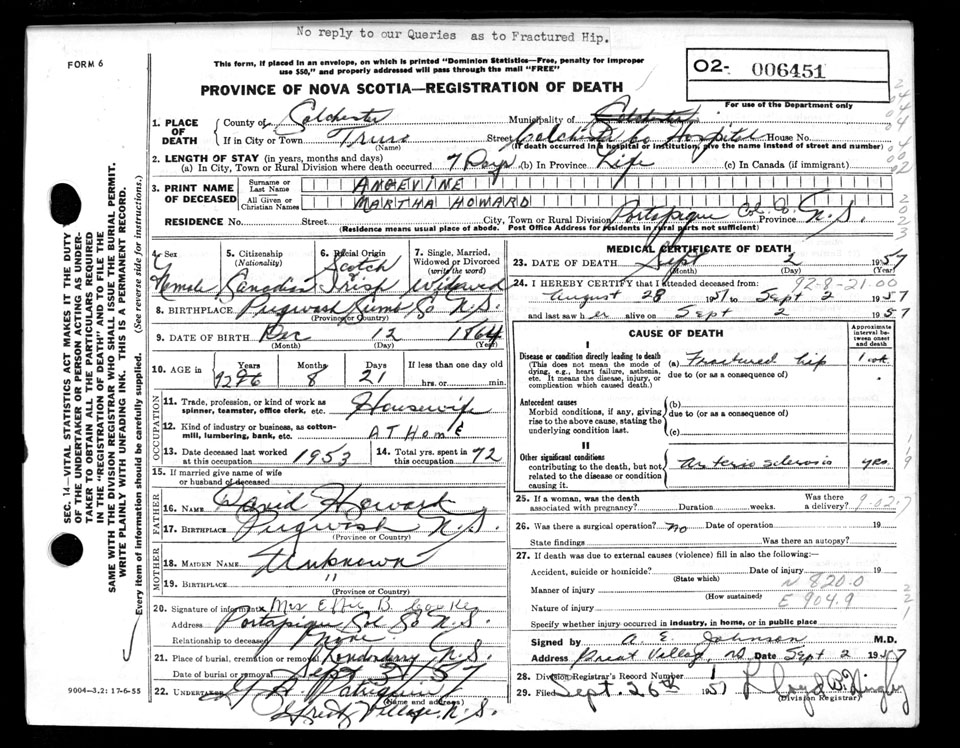 No reply to our Queries as to Fractured Hip.
FORM 6
This form, if placed in an envelope, on which is printed "Dominion Statistics—Free, penalty for improper
use $50," and properly addressed will pass through the mail "FREE"
02- 006451
For use of the Department only
PROVINCE OF NOVA SCOTIA—REGISTRATION OF DEATH
1. PLACE OF DEATH
County of Colchester Municipality of Colchester
If in City or Town Truro Street Colchester Co Hospital House No.
(Name) (If death occurred in a hospital or institution, give name instead of street and number)
2. LENGTH OF STAY (in years, months and days)
(a) In City, Town or Rural Division where death occurred 7 Days (b) In Province Life (c) In Canada (if immigrant)
3. PRINT NAME OF DECEASED
Surname or Last Name ANGEVINE
All Given or Christian Names MARTHA HOWARD
RESIDENCE No. Street City, Town or Rural Division Portapique Col. Co. Province N.S.
(Residence means usual place of abode. Post Office Address for residents in rural parts not sufficient)
4. Sex Female
5. Citizenship (Nationality) Canadian
6. Racial Origin Scotch Irish
7. Single, Married, Widowed or Divorced (write the word) Widowed
8. BIRTHPLACE Pugwash Cumb Co N.S.
(Province or Country)
9. DATE OF BIRTH Dec 12 1864
(Month) (Day) (Year)
10. AGE in Years 92 Months 8 Days 21 If less than one day old
hrs. or min.
OCCUPATION
11. Trade, profession, or kind of work as spinner, teamster, office clerk, etc. Housewife
12. Kind of industry or business, as cotton-mill, lumbering, bank, etc. AT Home
13. Date deceased last worked at this occupation 1953
14. Total yrs. spent in this occupation 72
15. If married give name of wife or husband of deceased
FATHER
16. NAME David Howard
17. BIRTHPLACE Pugwash N.S.
(Province or Country)
MOTHER
18. MAIDEN NAME Unknown
19. BIRTHPLACE "
(Province or Country)
20. Signature of informant Mrs Effie B.
Address Portapique Col Co N.S.
Relationship to deceased None
21. Place of burial, cremation or removal N.S.
Date of burial or removal Sept 3/57
22. UNDERTAKER
(Name and address)
Great Village, N.S.
MEDICAL CERTIFICATE OF DEATH
23. DATE OF DEATH Sept 2 1957
(Month) (Day) (Year)
24. I HEREBY CERTIFY that I attended deceased from: 92-8-21.00
August 28 1957 to Sept 2 1957
and last saw her alive on Sept 2 1957
CAUSE OF DEATH
Approximate interval between onset and death
I
Disease or condition directly leading to death (a) Fractured hip 1 wk
(This does not mean the mode of dying, e.g., heart failure, asthenia, etc. It means the disease, injury, or complication which caused death.)
due to (or as a consequence of)
Antecedent causes (b)
Morbid conditions, if any, giving rise to the above cause, stating the underlying condition last.
due to (or as a consequence of)
(c)
II
Other significant conditions arteriosclerosis yrs.
contributing to the death, but not related to the disease or condition causing it.
25. If a woman, was the death associated with pregnancy? Duration weeks. Was there a delivery?
26. Was there a surgical operation? no Date of operation 19
State findings Was there an autopsy?
27. If death was due to external causes (violence) fill in also the following:
Accident, suicide or homicide? Date of injury 19
(State which)
Manner of injury N 820.0
(How sustained)
Nature of injury E 904.9
Specify whether injury occurred in industry, in home, or in public place
Signed by A. E. Johnson M.D.
Address Great Village, NS Date Sept 2 1957
28. Division Registrar's Record Number 1
29. Filed Sept. 26th 1957
(Division Registrar)
SEC. 14—VITAL STATISTICS ACT MAKES IT THE DUTY
OF THE UNDERTAKER OR PERSON ACTING AS UNDER-
TAKER TO OBTAIN ALL THE PARTICULARS REQUIRED
IN THE "REGISTRATION OF DEATH" AND TO FILE THE
SAME WITH THE DIVISION REGISTRAR WHO SHALL ISSUE THE BURIAL PERMIT.
WRITE PLAINLY WITH UNFADING INK. THIS IS A PERMANENT RECORD.
Every item of information should be carefully supplied. (See reverse side for instructions.)
9004-3.2: 17-6-55